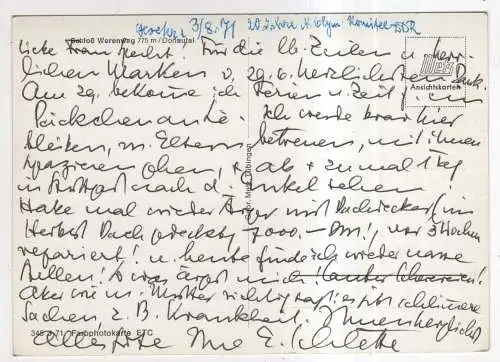 Schloß Werenwag 775 m / Donautal
3/8.71 20 Jahre N. Olym. Komitee DDR
Liebe Frau Hecht. Für die lb. Zeilen u. herr-
lichen Marken v. 29.6. herzlichsten Dank.
Metz
Ansichtskarten
Am 29. bekomme ich Ferien u. Zeit, um
Päckchen Ich werde zwar hier
bleiben, m. Eltern betreuen, mit ihnen
spazieren gehen, + ab + zu mal 1 Tag
in Stuttgart nach d. Enkel sehen
Metz, Tübingen
Habe mal wieder Ärger mit Dachdecker (im
Herbst Dach gedeckt, 7000.- DM!, vor 3 Wochen
repariert! u. heute finde ich wieder nasse
Stellen! So was ärgert mich! lauter
Aber wie m. Mutter richtig sagt: es gibt schlimmere
Sachen z. B. Krankheit. Ihnen herzlichst
Farbphotokarte ETC
alles Gute Ihre E.